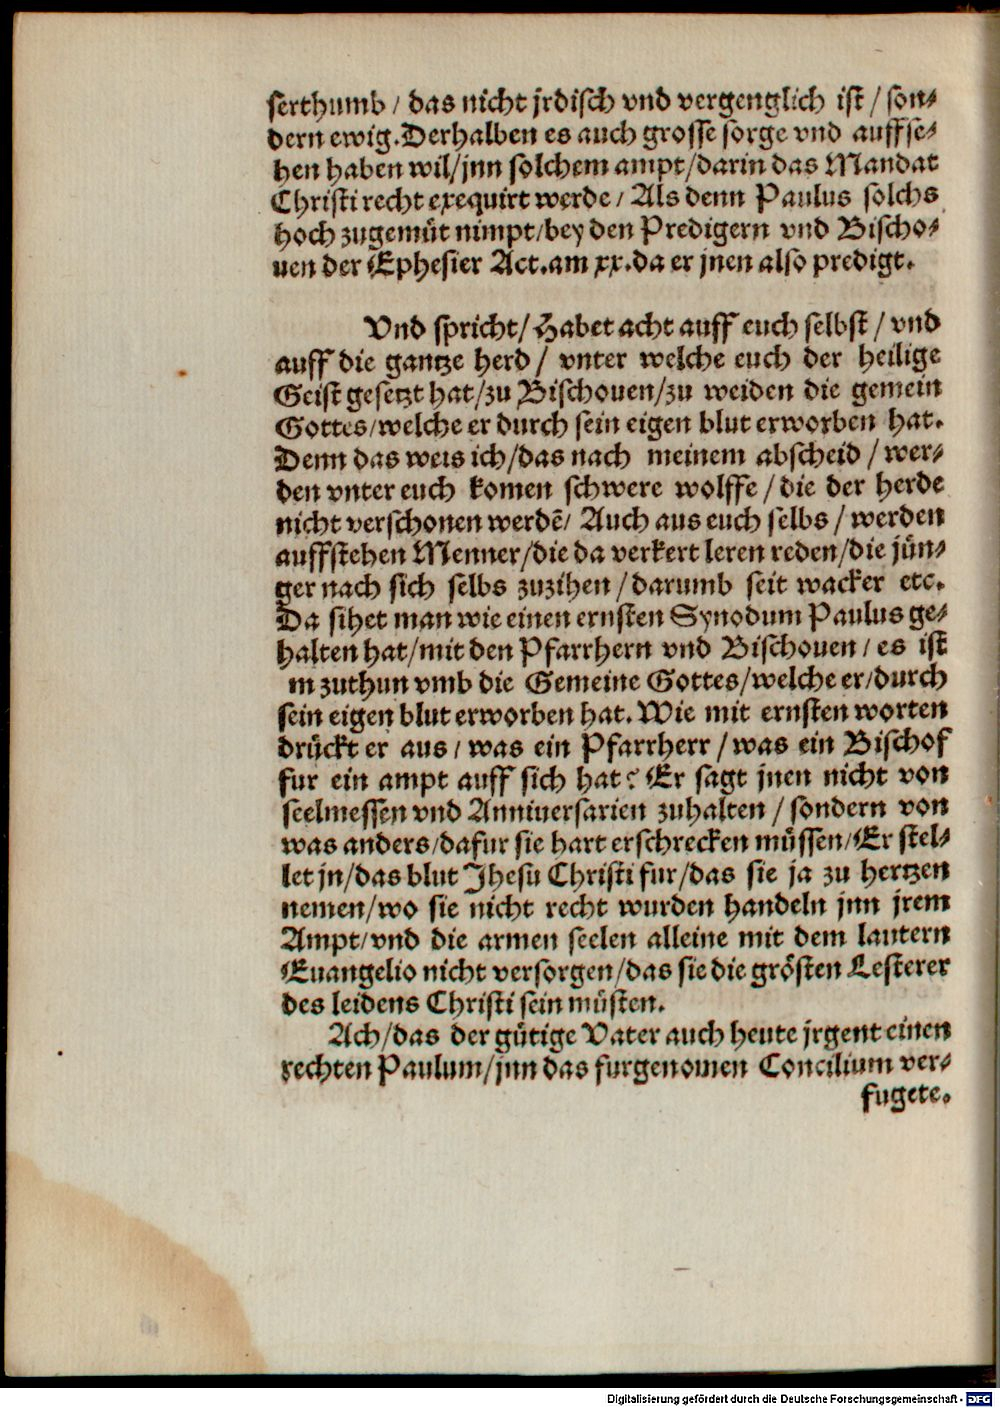 serthumb / das nicht jrdisch vnd vergenglich ist / son-
dern ewig. Derhalben es auch grosse sorge vnd auffse-
hen haben wil / jnn solchem ampt / darin das Mandat
Christi recht exequirt werde / Als denn Paulus solchs
hoch zugemüt nimpt / bey den Predigern vnd Bischo-
uen der Ephesier Act. am xx. da er jnen also predigt.
Vnd spricht / Habet acht auff euch selbst / vnd
auff die gantze herd / vnter welche euch der heilige
Geist gesetzt hat / zu Bischouen / zu weiden die gemein
Gottes / welche er durch sein eigen blut erworben hat.
Denn das weis ich / das nach meinem abscheid / wer-
den vnter euch komen schwere wolffe / die der herde
nicht verschonen werdē / Auch aus euch selbs / werden
auffstehen Menner / die da verkert leren reden / die jün-
ger nach sich selbs zuzihen / darumb seit wacker etc.
Da sihet man wie einen ernsten Synodum Paulus ge-
halten hat / mit den Pfarrhern vnd Bischouen / es ist
m zuthun vmb die Gemeine Gottes / welche er / durch
sein eigen blut erworben hat. Wie mit ernsten worten
drückt er aus / was ein Pfarrherr / was ein Bischof
fur ein ampt auff sich hat? Er sagt jnen nicht von
seelmessen vnd Anniuersarien zuhalten / sondern von
was anders / dafur sie hart erschrecken müssen / Er stel-
let jn / das blut Jhesu Christi fur / das sie ja zu hertzen
nemen / wo sie nicht recht wurden handeln jnn jrem
Ampt / vnd die armen seelen alleine mit dem lautern
Euangelio nicht versorgen / das sie die grösten Lesterer
des leidens Christi sein müsten.
Ach / das der gütige Vater auch heute jrgent einen
rechten Paulum / jnn das furgenomen Concilium ver-
fugete.
Digitalisierung gefördert durch die Deutsche Forschungsgemeinschaft - DFG